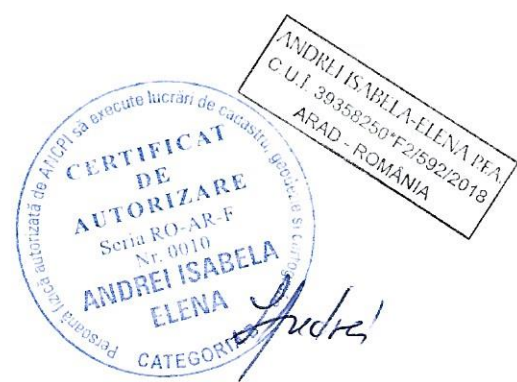 ANDREI ISABELA-ELENA PFA.
C.U.I. 39358250*F2/592/2018
ARAD - ROMÂNIA
Persoană fizică autorizată de ANCPI să execute lucrări de cadastru, geodezie și cartografie
CERTIFICAT
DE
AUTORIZARE
Seria RO-AR-F
Nr. 0010
ANDREI ISABELA
ELENA
CATEGORIA
Andrei